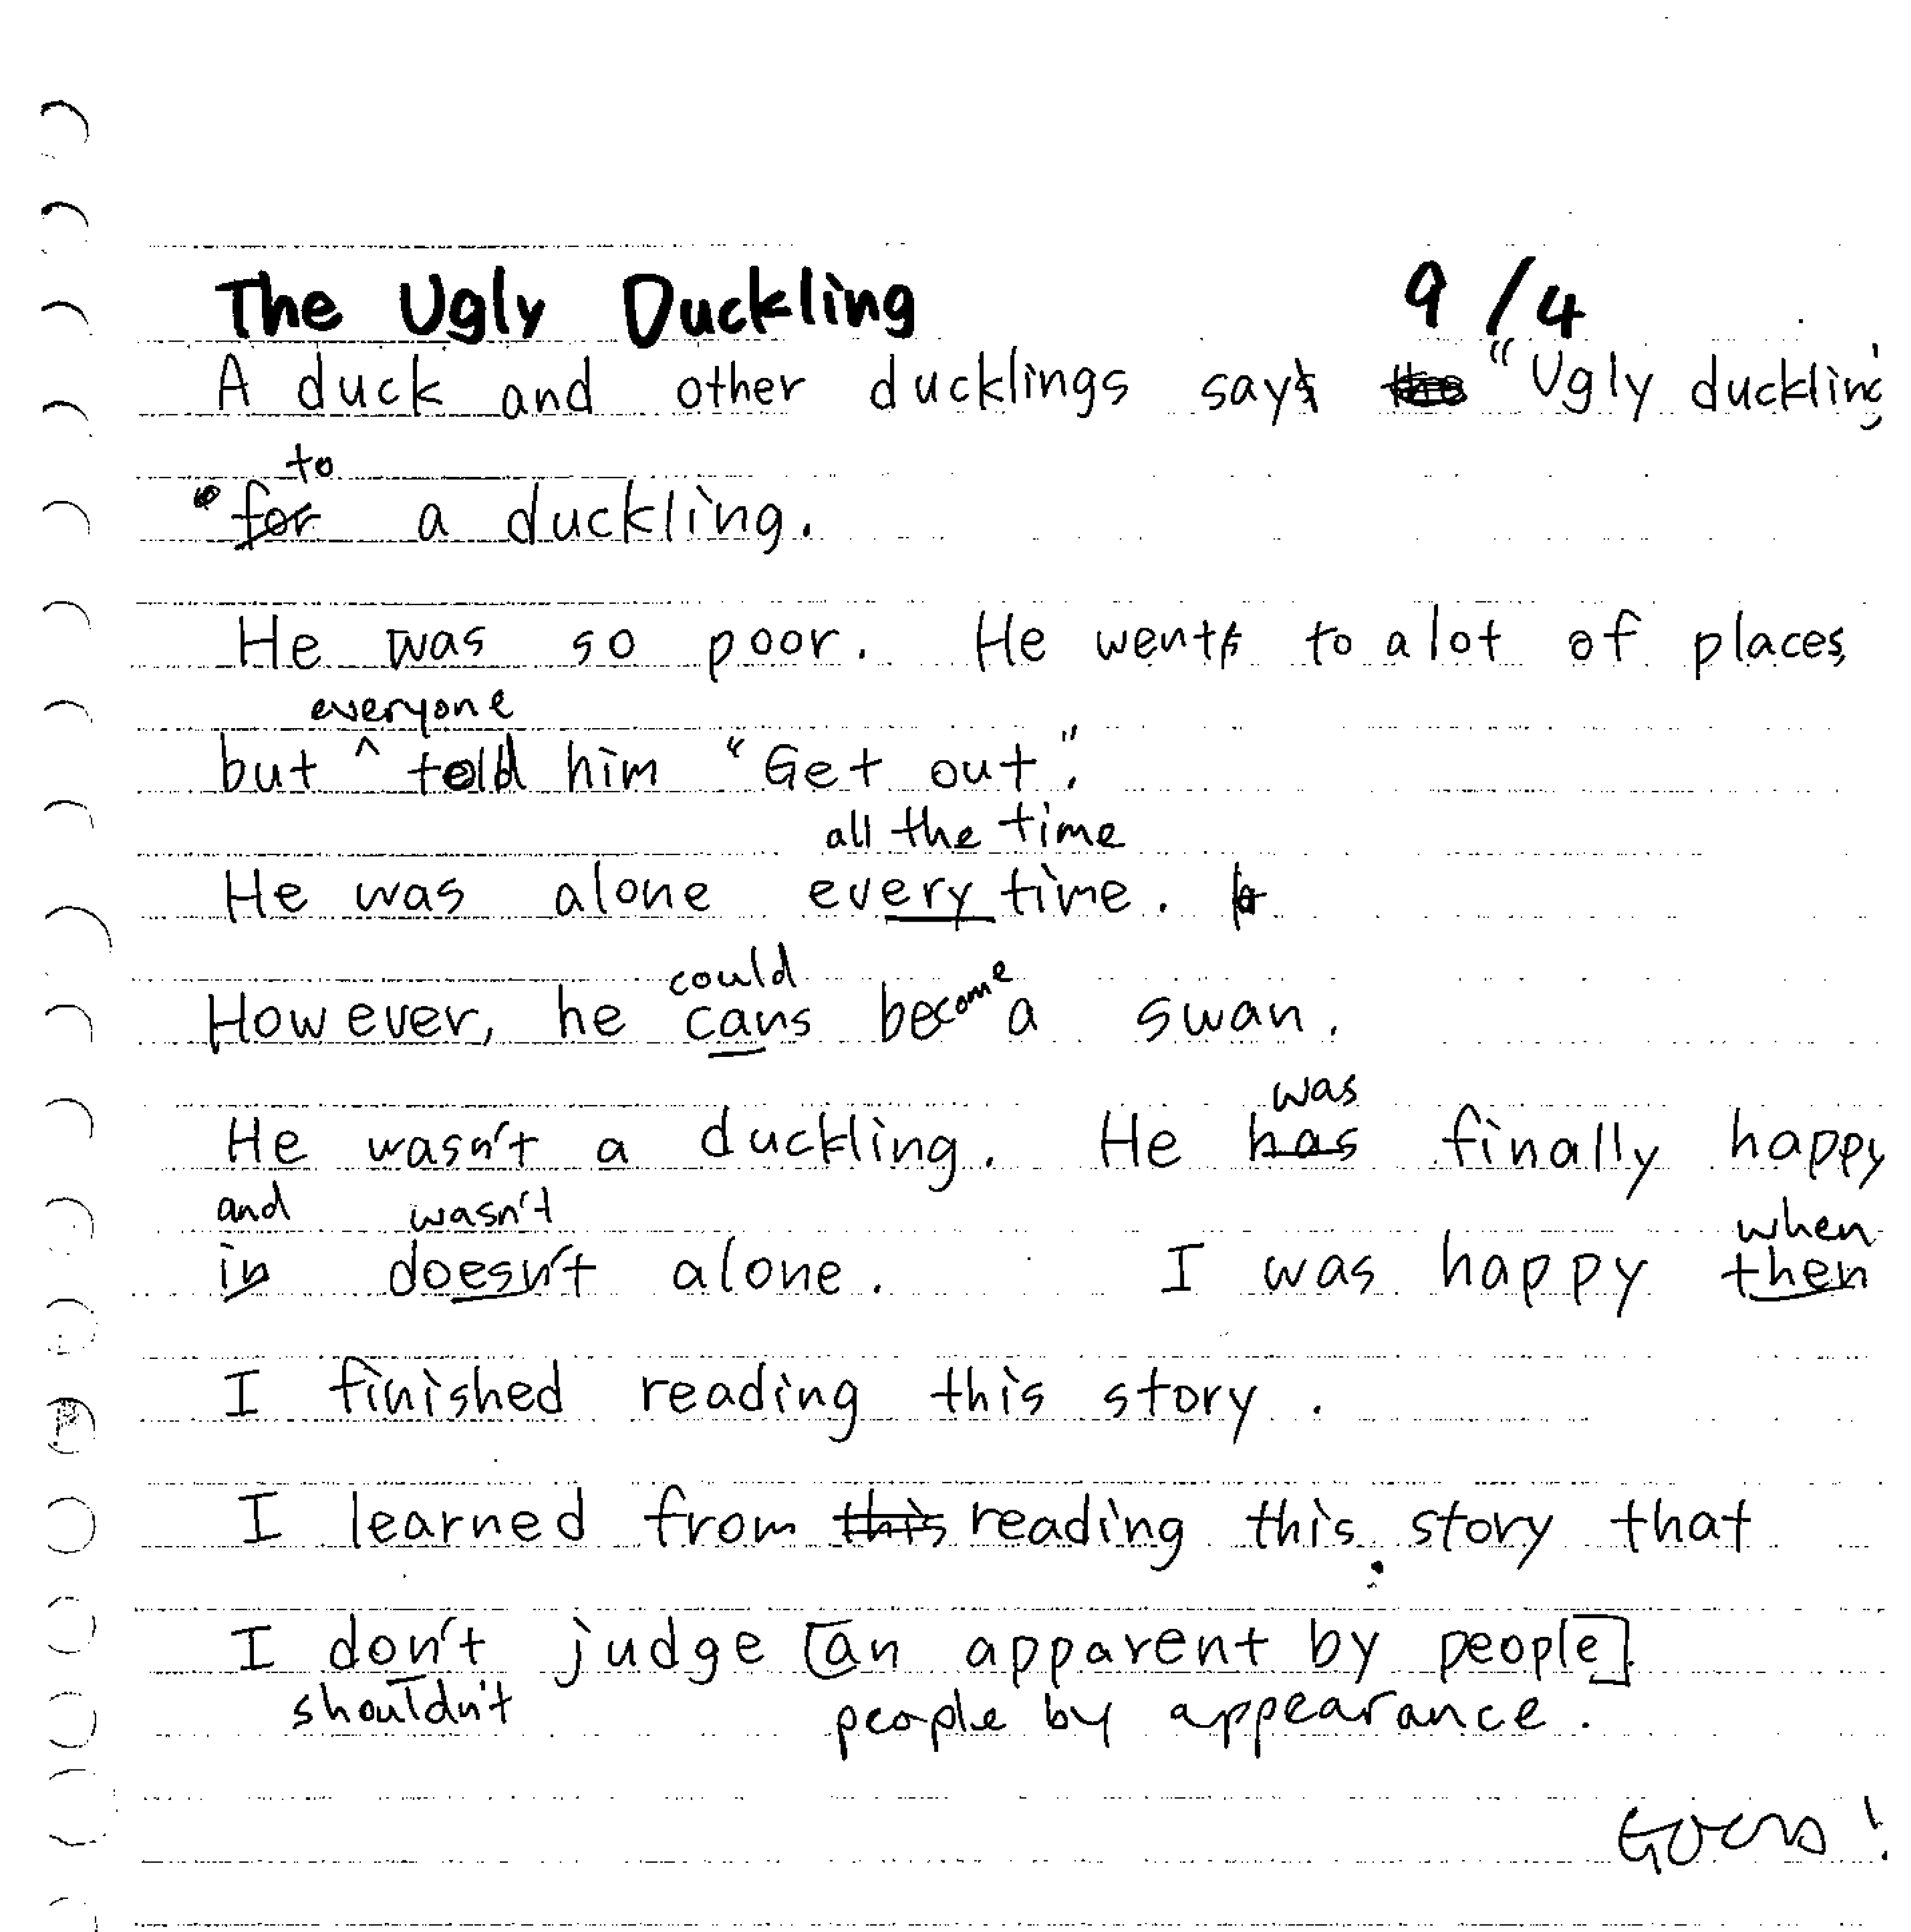 The Ugly Duckling 9/4
A duck and other ducklings say "Ugly duckling
to
for a duckling.
He was so poor. He went to a lot of places,
everyone
but ^ told him "Get out".
all the time
He was alone every time.
could
However, he cans become a swan.
was
He wasn't a duckling. He has finally happy
and wasn't when
in doesn't alone. I was happy then
I finished reading this story.
I learned from this reading this story that
I don't judge [an apparent by people].
shouldn't people by appearance.
Good!